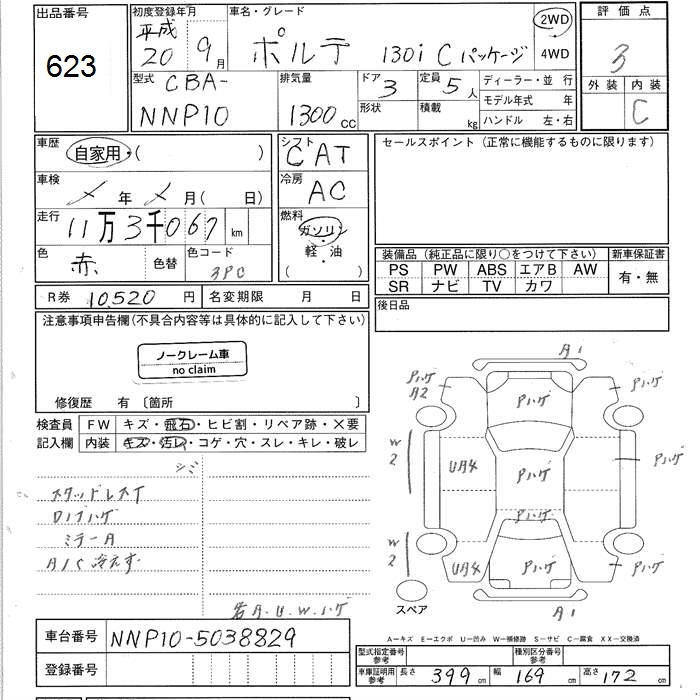 出品番号
623
初度登録年月
平成
20 9月
車名・グレード
ポルテ 130i Cパッケージ
2WD
4WD
評価点
3
外装 内装
C
型式 CBA-
NNP10
排気量
1300cc
ドア 3
形状
定員 5人
積載 kg
ディーラー・並 行
モデル年式 年
ハンドル 左・右
車歴
自家用・( )
車検
年 月( 日)
走行
11万3千067 km
色
赤
色替
色コード
3PC
シフト
CAT
冷房
AC
燃料
ガソリン
・
軽・油
( )
セールスポイント(正常に機能するものに限ります)
装備品(純正品に限り○をつけて下さい)
PS PW ABS エアB AW
SR ナビ TV カワ
新車保証書
有・無
R券 10,520 円
名変期限 月 日
後日品
注意事項申告欄(不具合内容等は具体的に記入して下さい)
ノークレーム車
no claim
修復歴 有 〔箇所 〕
検査員
記入欄
FW キズ・飛石・ヒビ割・リペア跡・×要
内装 キズ・汚レ・コゲ・穴・スレ・キレ・破レ
シミ
スタッドレスT
ロゴハゲ
ミラーA
A/C冷えず
若A.U.W.ハゲ
A1
Pハゲ
A2
Pハゲ
Pハゲ
W
2
U月4
Pハゲ
Pハゲ
Pハゲ
W
2
U月4
Pハゲ
Pハゲ
スペア
A1
A―キズ E―エクボ U―凹み W―補修跡 S―サビ C―腐食 XX―交換済
車台番号 NNP10-5038829
登録番号
型式指定番号
参考
種別区分番号
参考
車庫証明用
参考
長さ 399 cm
幅 169 cm
高さ 172 cm